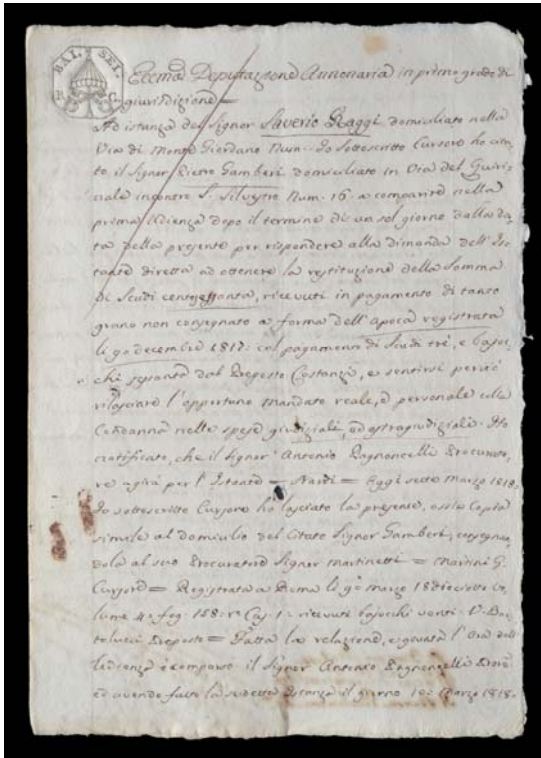 BAI. SEI.
R. C.
Eccma Deputazione Annonaria in primo grado di
giurisdizione =
Ad istanza del Signor Saverio Raggi domiciliato nella
Via di Monte Giordano Num = Io Sottoscritto Cursore ho cita
to il Signor Pietro Gamberi domiciliato in Via del Quiri
nale incontro S. Silvestro Num. 16 a comparire nella
prima Udienza dopo il termine di un sol giorno dalla da
ta della presente per rispondere alla dimanda dell' Is
tante diretta ad ottenere la restituzione della Somma
di Scudi ricevuti in pagamento di tanto
grano non consegnato a forma dell' apoca registrata
li decembre 1817: col pagamento di Scudi tré, e bajoc
chi sessanta dal Preposto Costanzi, e sentirsi perciò
rilasciare l'opportuno mandato reale, e personale colla
Condanna nelle spese giudiziali, ed estragiudiziali. Ho
notificato, che il Signor Antonio Pagnoncelli Procurato
re agirà per l' Istante = Nardi = Oggi sette Marzo 1818.
Io sottoscritto Cursore ho lasciato la presente, ossia Copia
simile al domicilio del Citato Signor Gamberi, consegnan
dola al suo Procuratore Signor Martinetti = Martini G.
Cursore = Registrata a Roma li 9 Marzo 18dieciotto Vo
lume 4: fog: 158: rº Cas. 1: ricevuti bajocchi venti. V. Bar
tolucci Preposto = Fatta la relazione, e l' Ora dell'
Udienza è comparso il Signor Antonio Pagnoncelli
ed avendo fatta la sudetta Istanza il giorno 10: Marzo 1818.